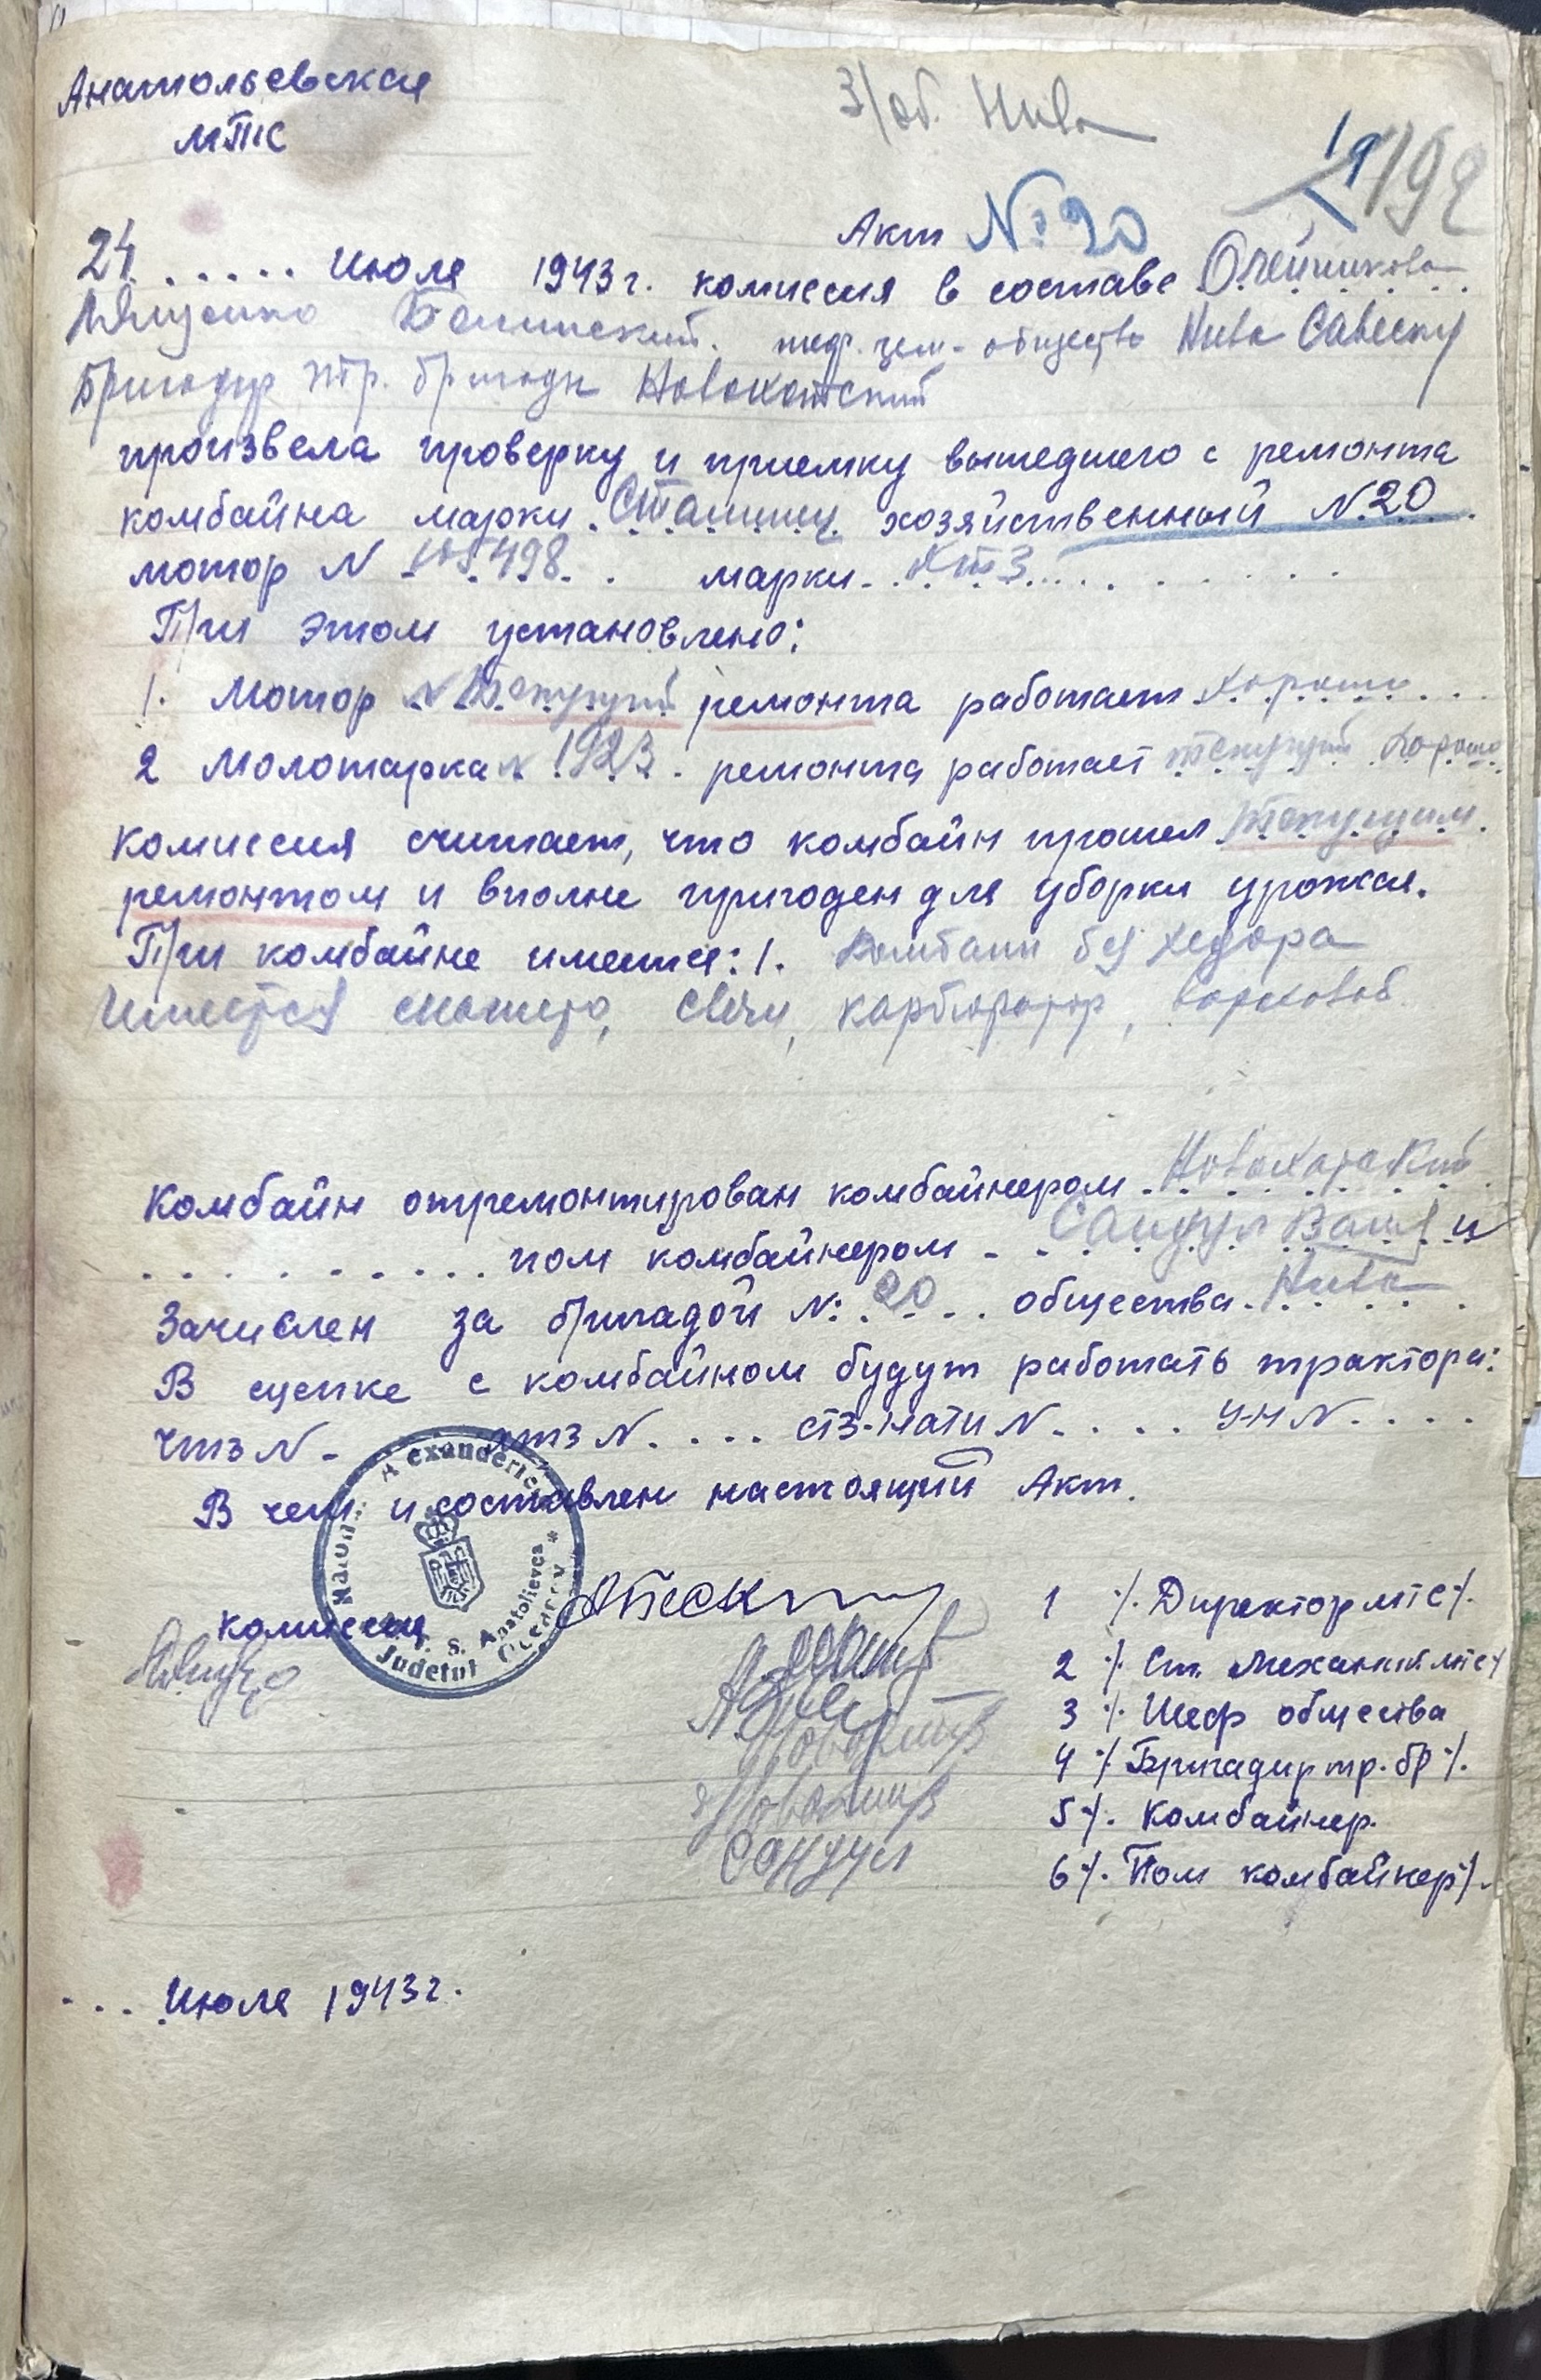 Анатольевская
МТС
З/об. Нива
19 192
Акт № 20
24 ..... Июля 1943 г. комиссия в составе Олейникова
Ляшенко Белинский. шеф. зем. общества Нива Савеску
Бригадир тр. бригады Новохатский
произвела проверку и приемку вышедшего с ремонта
комбайна марки. Сталинец хозяйственный N. 20
мотор N 498 . марки ХТЗ
При этом установлено:
1. Мотор N Текущий ремонта работает хорошо ..
2 Молотарка N 1923. ремонта работает текущий хорошо
комиссия считает, что комбайн прошел Текущим.
ремонтом и вполне пригоден для уборки урожая.
При комбайне имеется: 1. Комбайн без хедора
Имеется магнето, свечи, карбюратор,
Комбайн отремонтирован комбайнером Новохатский
.......... пом комбайнером - Сандул Ваня и
Зачислен за бригадой №: 20 .. общества. Нива
В сцепке с комбайном будут работать трактора:
ЧТЗ N - ХТЗ N .... СТЗ-НАТИ N .... У-Н N ....
В чем и составлен настоящий Акт.
Raionul Alexanderfeld
S. Anatolievca
Judetul Oceacov *
Комиссия
1 %. Директор МТС %.
2 %. Ст. Механик МТС %
3 %. Шеф общества
4 %. Бригадир тр. бр %.
5 %. Комбайнер.
Сандул
6 %. Пом комбайнер %.
... Июля 1943 г.